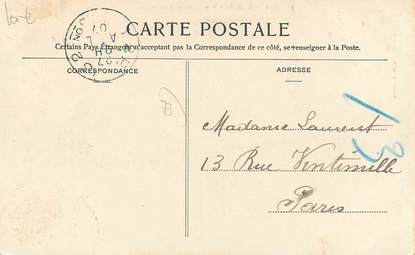 CARTE POSTALE
Certains Pays Étrangers n'acceptant pas la Correspondance de ce côté, se renseigner à la Poste.
CORRESPONDANCE
ADRESSE
Madame Laurent
13 Rue Ventimille
Paris